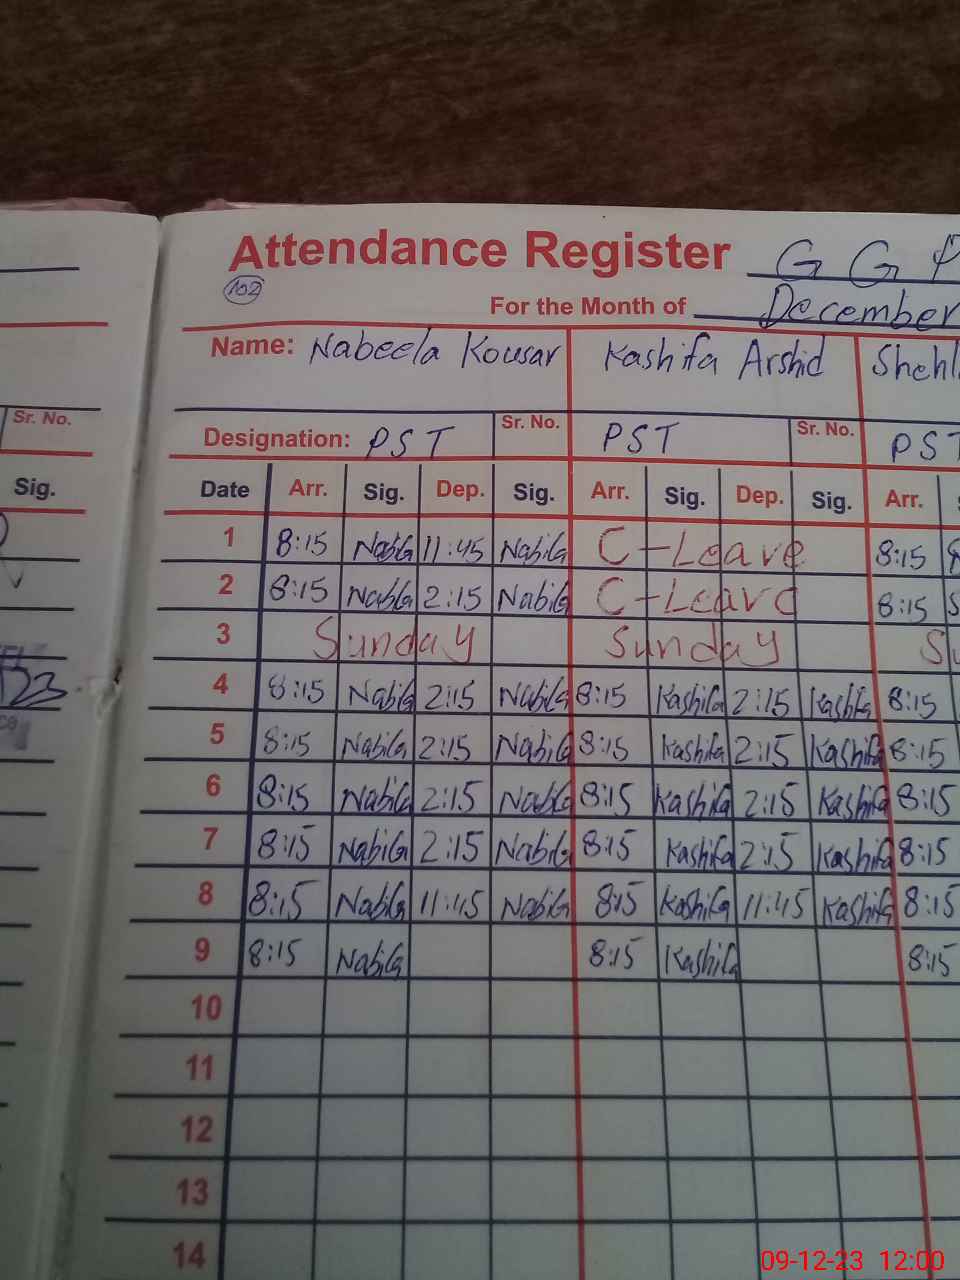 Attendance Register G G P
102
For the Month of December
Name: Nabeela Kousar Kashifa Arshid Shehl
Sr. No. Designation: PST Sr. No. PST Sr. No. PST
Sig. Date Arr. Sig. Dep. Sig. Arr. Sig. Dep. Sig. Arr.
1 8:15 Nabila 11:45 Nabila C-Leave 8:15
2 8:15 Nabila 2:15 Nabila C-Leave 8:15
3 Sunday Sunday Su
4 8:15 Nabila 2:15 Nabila 8:15 Kashifa 2:15 Kashifa 8:15
5 8:15 Nabila 2:15 Nabila 8:15 Kashifa 2:15 Kashifa 8:15
6 8:15 Nabila 2:15 Nabila 8:15 Kashifa 2:15 Kashifa 8:15
7 8:15 Nabila 2:15 Nabila 8:15 Kashifa 2:15 Kashifa 8:15
8 8:15 Nabila 11:45 Nabila 8:15 Kashifa 11:45 Kashifa 8:15
9 8:15 Nabila 8:15 Kashifa 8:15
10
11
12
13
14
09-12-23 12:00